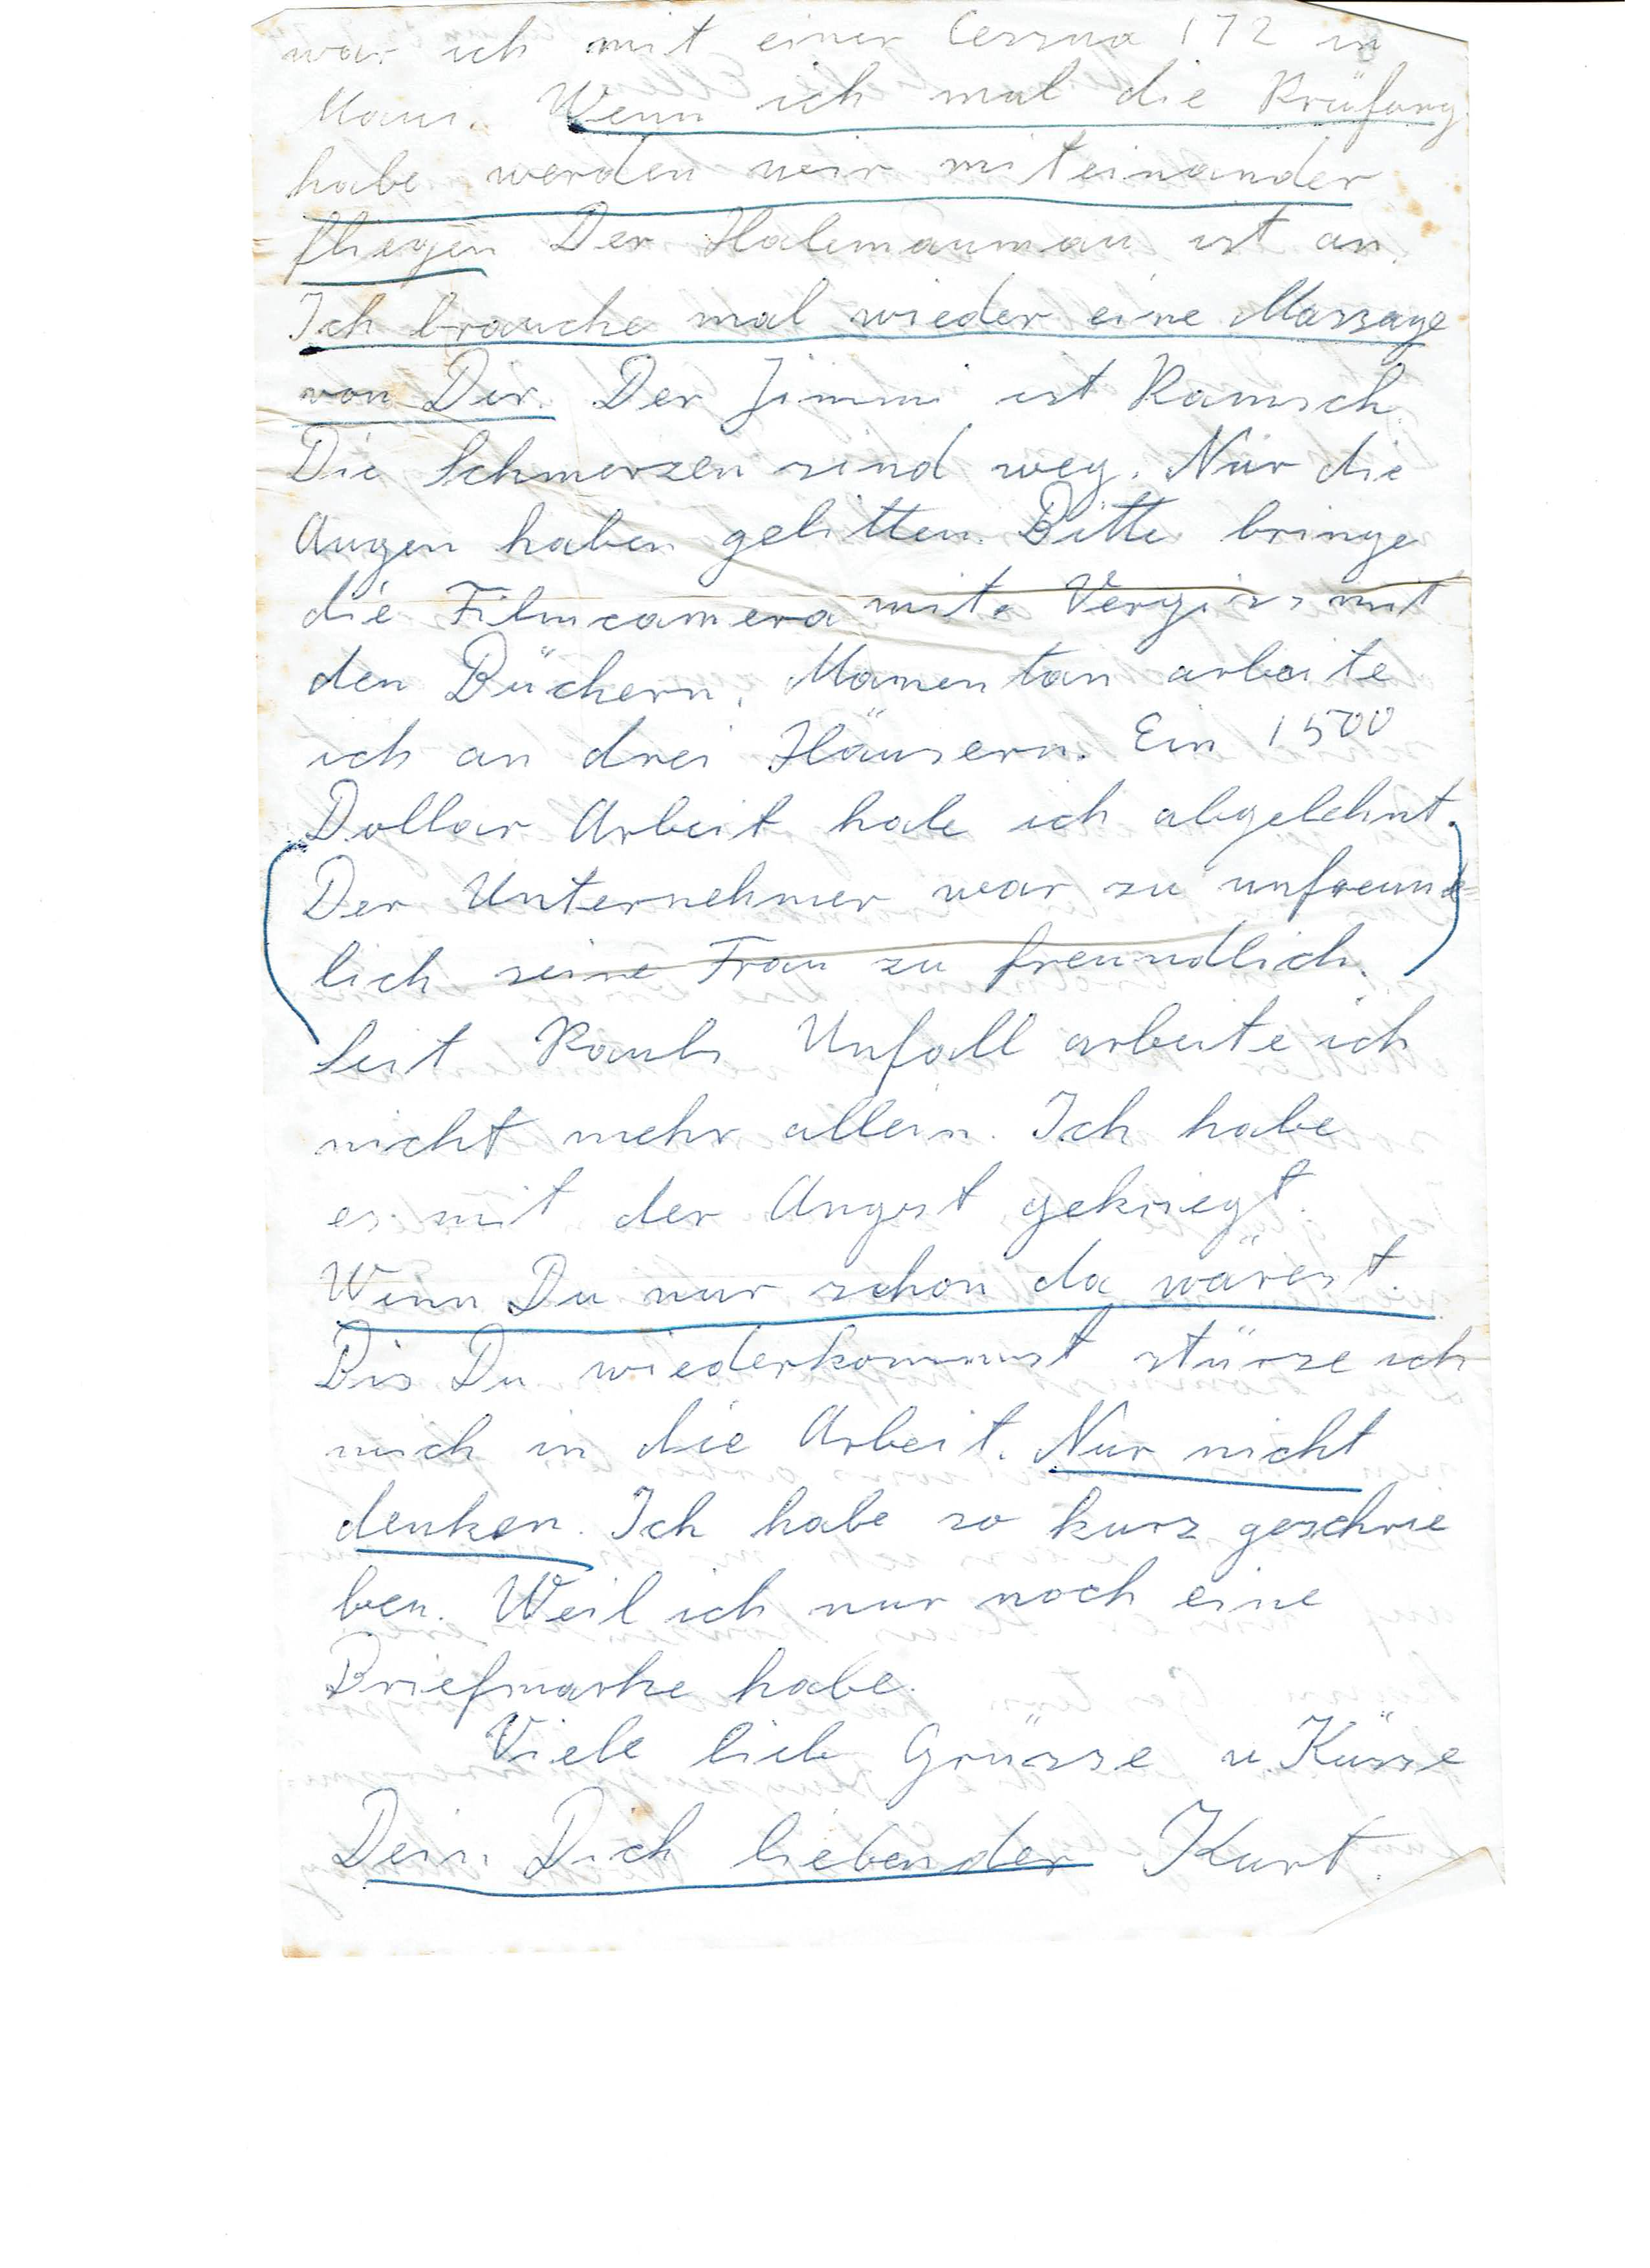 war ich mit einer Cessna 172 in
Maui. Wenn ich mal die Prüfung
habe werden wir miteinander
fliegen Der Halemaumau ist an.
Ich brauche mal wieder eine Massage
von Dir. Der Jimmi ist Ramsch.
Die Schmerzen sind weg. Nur die
Augen haben gelitten. Bitte bringe
die Filmcamera mit. Vergiss mit
den Büchern. Momentan arbeite
ich an drei Häusern. Ein 1500
Dollar Arbeit habe ich abgelehnt.
Der Unternehmer war zu unfreund=
lich seine Frau zu freundlich.
Seit Pauls Unfall arbeite ich
nicht mehr allein. Ich habe
es mit der Angst gekriegt.
Wenn Du nur schon da wärest.
Bis Du wiederkommst stürze ich
mich in die Arbeit. Nur nicht
denken. Ich habe so kurz geschrie
ben. Weil ich nur noch eine
Briefmarke habe.
Viele liebe Grüsse u. Küsse
Dein Dich liebender Kurt.